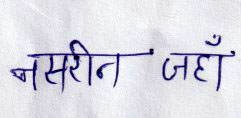 नसरीन जहाँ